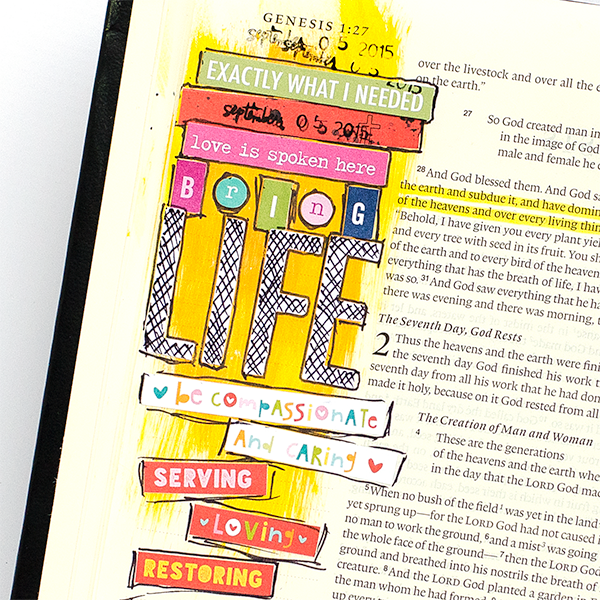 GENESIS 1:27
september 0 5 2015
0 5 2015
EXACTLY WHAT I NEEDED
september 0 5 2015
love is spoken here
BrinG
LIFE
be compassionate
And CARing
SERVING
Loving
RESTORING
over the livestock and over all the e
on the earth.”
27 So God created man in
in the image of God
male and female he c
28 And God blessed them. And God sa
the earth and subdue it, and have domin
of the heavens and over every living thin
“Behold, I have given you every plant yield
and every tree with seed in its fruit. You sha
of the earth and to every bird of the heaven
everything that has the breath of life, I hav
was so. 31 And God saw everything that he ha
there was evening and there was morning, t
The Seventh Day, God Rests
2 Thus the heavens and the earth were fini
the seventh day God finished his work t
seventh day from all his work that he had don
made it holy, because on it God rested from all
The Creation of Man and Woman
4 These are the generations
of the heavens and the earth whe
in the day that the LORD God mad
5 When no bush of the field¹ was yet in the land
yet sprung up—for the LORD God had not caused i
no man to work the ground, 6 and a mist² was going
the whole face of the ground— 7 then the LORD God
ground and breathed into his nostrils the breath of
creature. 8 And the LORD God planted a garden in E
the man whom he had formed.
up every